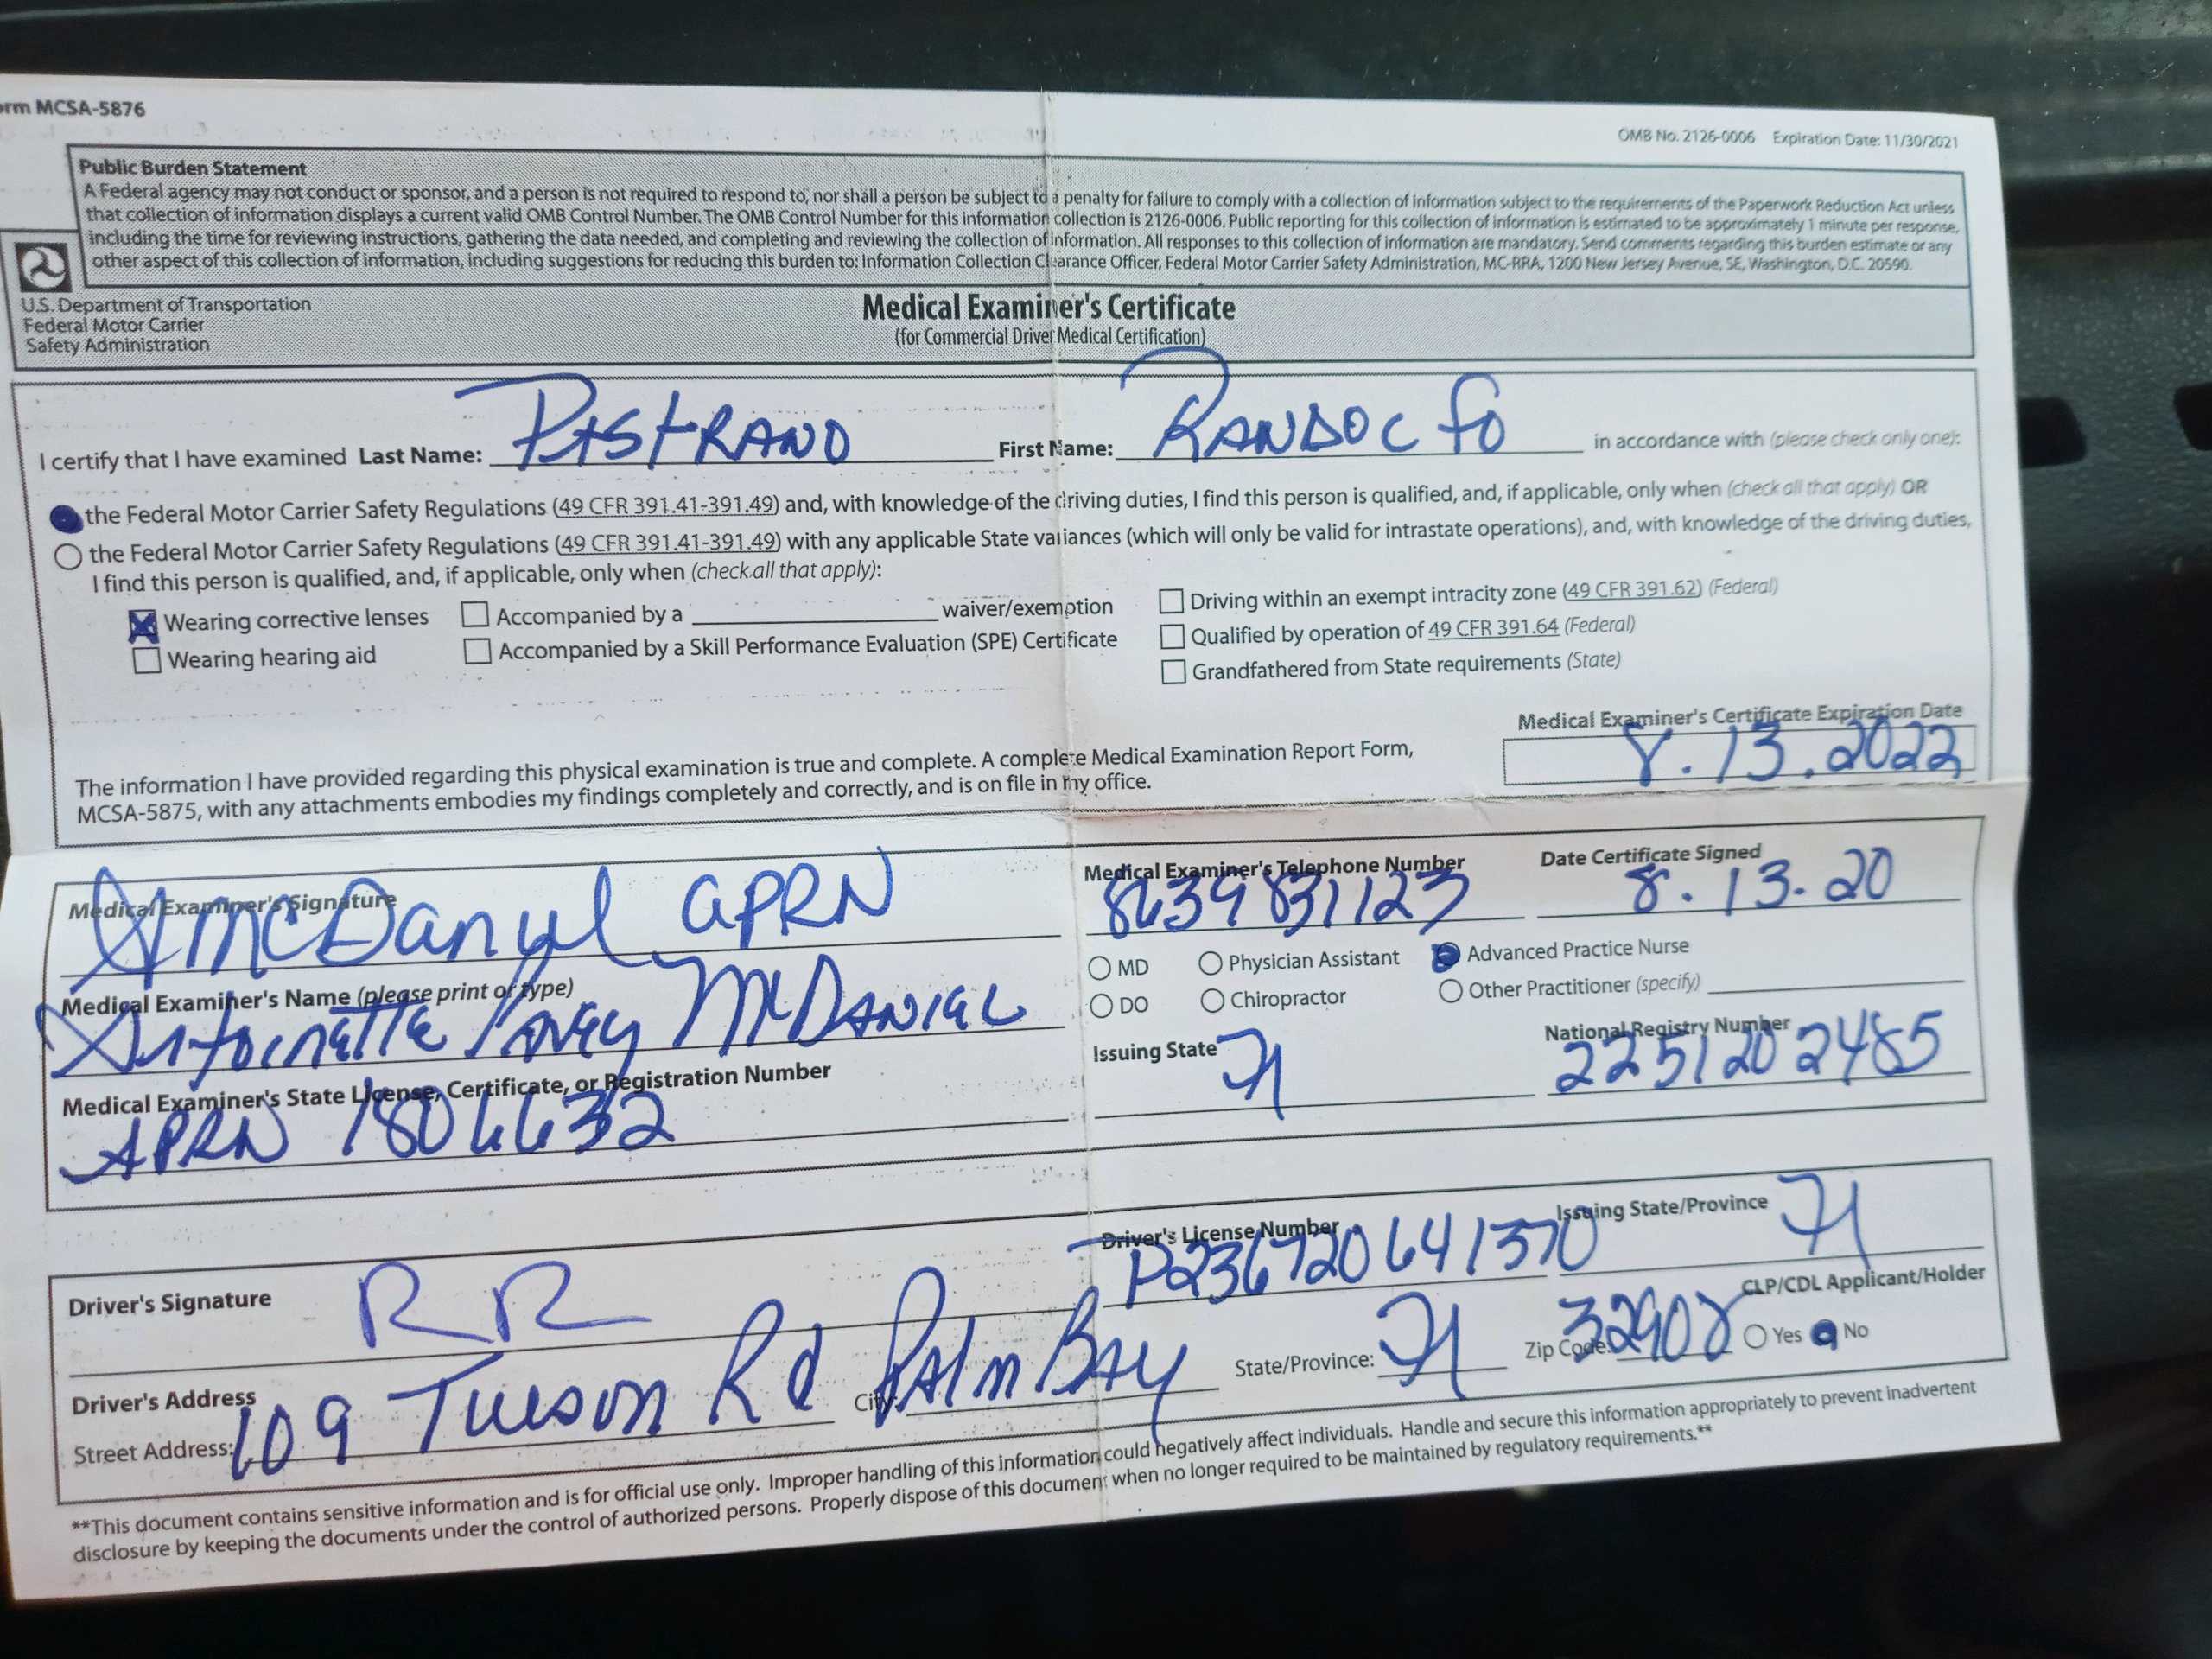 orm MCSA-5876
OMB No. 2126-0006 Expiration Date: 11/30/2021
Public Burden Statement
A Federal agency may not conduct or sponsor, and a person is not required to respond to, nor shall a person be subject to a penalty for failure to comply with a collection of information subject to the requirements of the Paperwork Reduction Act unless
that collection of information displays a current valid OMB Control Number. The OMB Control Number for this information collection is 2126-0006. Public reporting for this collection of information is estimated to be approximately 1 minute per response,
including the time for reviewing instructions, gathering the data needed, and completing and reviewing the collection of information. All responses to this collection of information are mandatory. Send comments regarding this burden estimate or any
other aspect of this collection of information, including suggestions for reducing this burden to: Information Collection Clearance Officer, Federal Motor Carrier Safety Administration, MC-RRA, 1200 New Jersey Avenue, SE, Washington, D.C. 20590.
U.S. Department of Transportation
Federal Motor Carrier
Safety Administration
Medical Examiner's Certificate
(for Commercial Driver Medical Certification)
I certify that I have examined Last Name: PAStRANO First Name: RANDOCfO in accordance with (please check only one):
the Federal Motor Carrier Safety Regulations (49 CFR 391.41-391.49) and, with knowledge of the driving duties, I find this person is qualified, and, if applicable, only when (check all that apply) OR
the Federal Motor Carrier Safety Regulations (49 CFR 391.41-391.49) with any applicable State variances (which will only be valid for intrastate operations), and, with knowledge of the driving duties,
I find this person is qualified, and, if applicable, only when (check all that apply):
Wearing corrective lenses Accompanied by a waiver/exemption Driving within an exempt intracity zone (49 CFR 391.62) (Federal)
Wearing hearing aid Accompanied by a Skill Performance Evaluation (SPE) Certificate Qualified by operation of 49 CFR 391.64 (Federal)
Grandfathered from State requirements (State)
Medical Examiner's Certificate Expiration Date
8.13.2022
The information I have provided regarding this physical examination is true and complete. A complete Medical Examination Report Form,
MCSA-5875, with any attachments embodies my findings completely and correctly, and is on file in my office.
Medical Examiner's Signature Medical Examiner's Telephone Number Date Certificate Signed
AMcDanyl APRN 8639831123 8.13.20
MD Physician Assistant Advanced Practice Nurse
DO Chiropractor Other Practitioner (specify)
Medical Examiner's Name (please print or type)
Antoinette McDANIAL
Issuing State Fl National Registry Number
2251202485
Medical Examiner's State License, Certificate, or Registration Number
APRN 1806632
Driver's License Number Issuing State/Province Fl
P236720641370
Driver's Signature RR
CLP/CDL Applicant/Holder
Yes No
Driver's Address
Street Address: 109 Tucson Rd City: PAlm BAy State/Province: Fl Zip Code: 32908
**This document contains sensitive information and is for official use only. Improper handling of this information could negatively affect individuals. Handle and secure this information appropriately to prevent inadvertent
disclosure by keeping the documents under the control of authorized persons. Properly dispose of this document when no longer required to be maintained by regulatory requirements.**